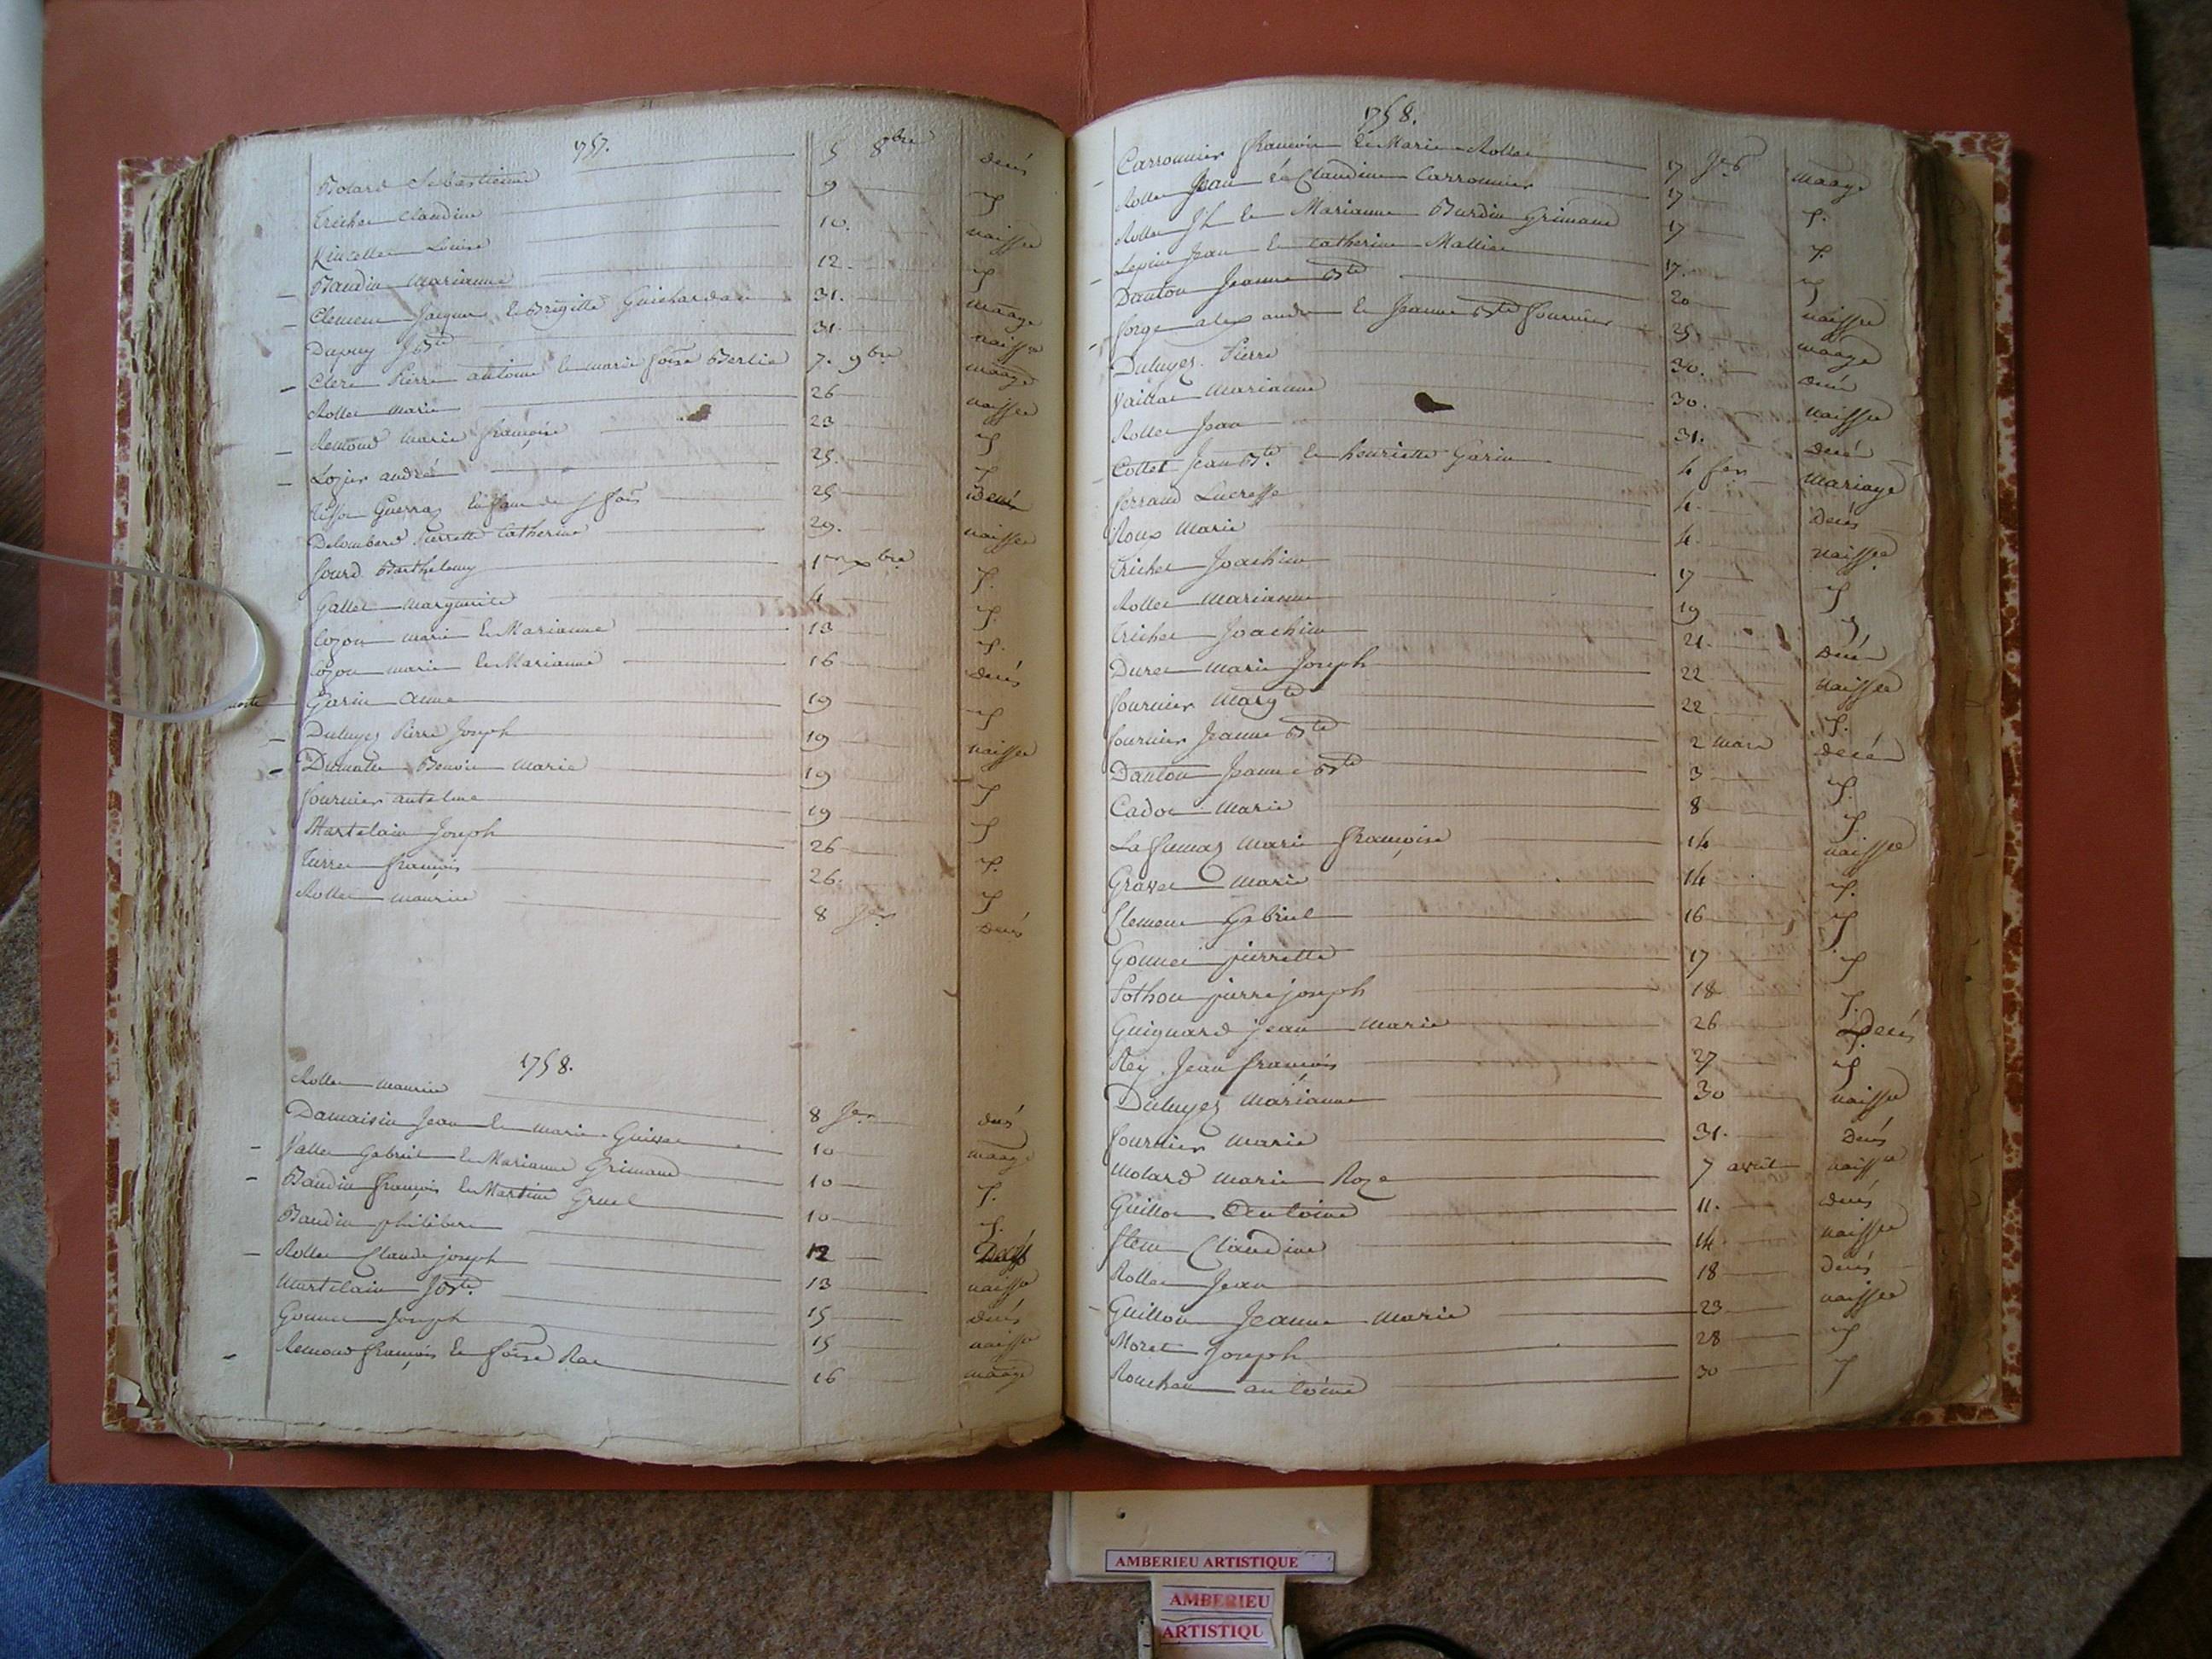 1757.
Bolard Sebastienne 5 8bre decés
Trichet Claudine 9 J
Louise 10. naisse
Baudin Marianne 12. J
Clement Jacques et Brigitte Guichardan 31. maage
Dupuy J Bte 31. naisse
Clere Pierre antoine et marie foise Berlie 7. 9bre maage
Rollet marie 26 naisse
Remond marie françoise 23 J
Lozier andré 25. J
enfant de J fois 25 Decés
Delombard Pierrette Catherine 29. naisse
Jourd Barthelemy 1er xbre J.
Gallet marguerite 4 J.
Cozon marie et Marianne 13 J.
Cozon marie et Marianne 16 decés
Garin anne 19 J
Duluyes Pierre Joseph 19 naisse
Benoit Marie 19 J
fournier antelme 19 J
Martelain Joseph 26 J.
françois 26. J
Rollet maurice 8 Jer Decés
1758.
Rollet maurice 8 Jer decés
Damaisin Jean et marie 10 maage
Vallet Gabriel et Marianne Grimaud 10 J.
Baudin françois et Martine Gruel 10 J.
Baudin philibert 12 Decés
Rollet Claude joseph 13 naisse
Martelain J Bte. 15 decés
Gonnet Joseph 15 naisse
Remond françois et foise Rae 16 maage
1758.
Carronnier françois et Marie Rollet 17 Jer maage
Rollet Jean et Claudine Carronnier 17 J.
Rollet Jh et Marianne Burdin Grimaud 17 J.
Lepin Jean et Catherine Mallin 17. J
Danton Jeanne Bte 20 naisse
forge alexandre et Jeanne Bte fournier 25 maage
Duluyes Pierre 30. decés
Marianne 30. naisse
Rollet Jean 31. decés
Collet Jean Bte. et henriette Garin 4 fer mariage
ferrand Lucresse 4. Decés
Roux Marie 4. naisse
Trichet Joachim 17 J
Rollet Marianne 19 J
Trichet Joachim 21. Decés
Duret marie Joseph 22 naisse
fournier Margte 22 J.
fournier Jeanne Bte 2 mars decés
Danton Jeanne Bte 3 J.
Cadot Marie 8 J.
Lafumas Marie françoise 14 naisse
Gravet Marie 14 J.
Clement Gabriel 16 J
Gonnet pierrette 17 J
Pothon pierre joseph 18 J.
Guignard jean Marie 26 Decés
Rey Jean françois 27 J
Duluyes Marianne 30 naisse
fournier Marie 31. Decés
Molard Marie Roze 7 avril naisse
Guillot Antoine 11. decés
Claudine 14 naisse
Rollet Jean 18 decés
Guillon Jeanne Marie 23 naisse
Moret Joseph 28 J
antoine 30 J
AMBERIEU ARTISTIQUE
AMBERIEU
ARTISTIQU